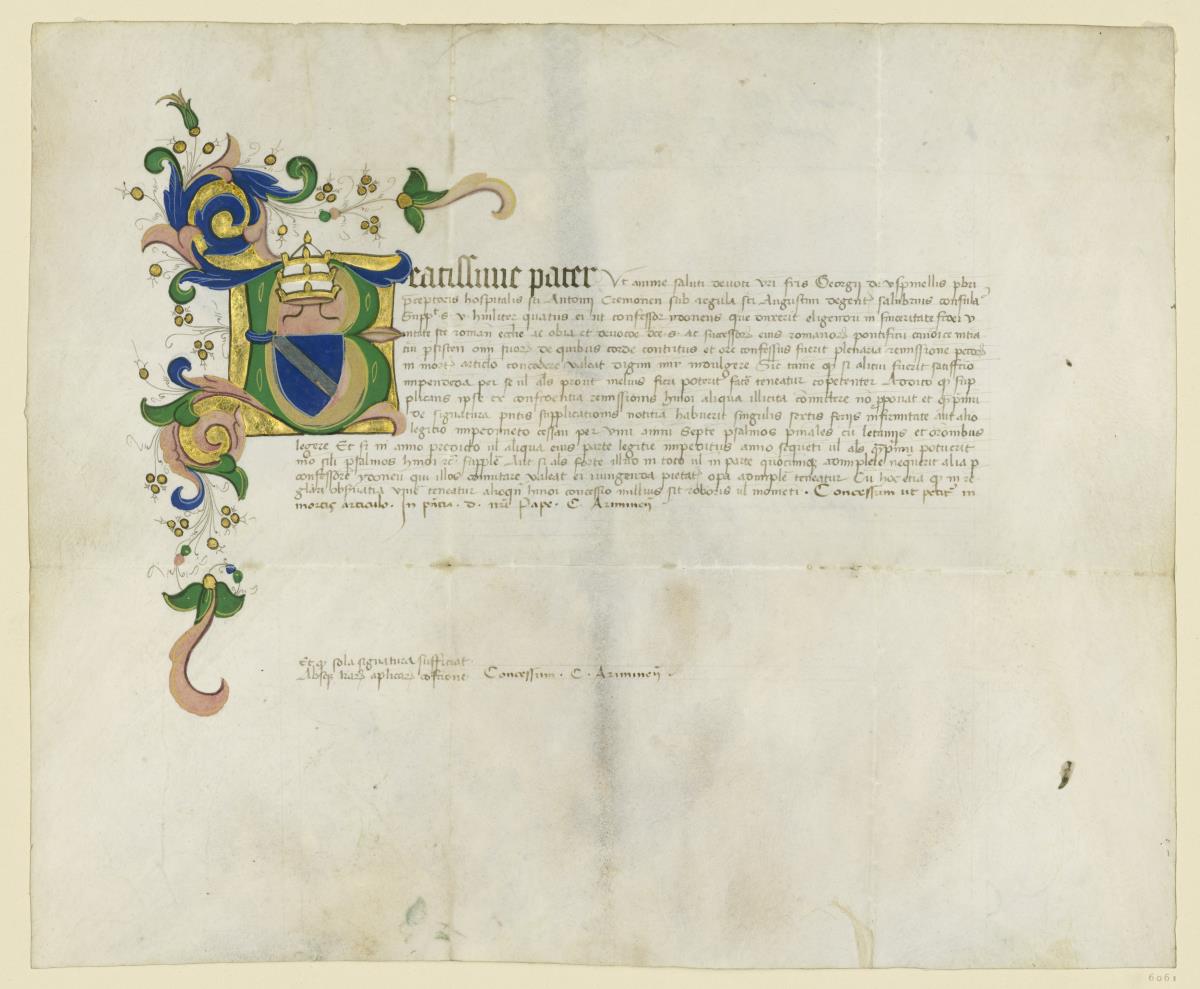 Beatissime pater Ut anime saluti devoti vri fris Georgii de pbri
preceptoris hospitalis sti Antonii Cremonen sub regula sti Augustini degentis salubrius consulat
Supp.t s. v. humiliter quatus ei ut confessor ydoneus que duxerit eligendu in sinceritate fidei v
nitate ste roman ecclie ac obia et devocoe s. ac successor eius romanor pontificu canoice intra
tiu psisteri oim suor de quibus corde contritus et ore confessus fuerit plenaria remissione pctor
in mort articlo concedere valeat dignemi indulgere. Sic tame qd si alicui fuerit satisfctio
impendeda per se ul als prout melius fieri poterit face teneatur copetenter Addito qd supp
plicans ipse ex confidentia remissionis hmoi aliqua illicita comittere no pponat et qprimu
de signatura pntis supplicationis notitia habuerit singulis sextis feriis infirmitate aut alio
legitio impedimeto cessan per unu annu septe psalmos pniales cu letaniis et oronibus
legere Et si in anno predicto ul aliqua eius parte legitie impeditus anno sequeti ul als qprimu potuerit
mo sili psalmos hmoi re supplē Aut si als forte illud in toto ul in parte quocumq adimplere nequerit alia p
confessore ydoneu qui illos comutare valeat ei iniungenda pietat opa adimplē teneatur Cu hoc etia q in re
glari obsvatia teneatur alioqn hmoi concessio nullius sit roboris ul mometi. Concessum ut petit in
mortis articulo. In pntia. d. nri Pape. C. Ariminen
Et qd sola signatura sufficiat
Absq lrar aplicar cofctione Concessum. C. Ariminen.
6061